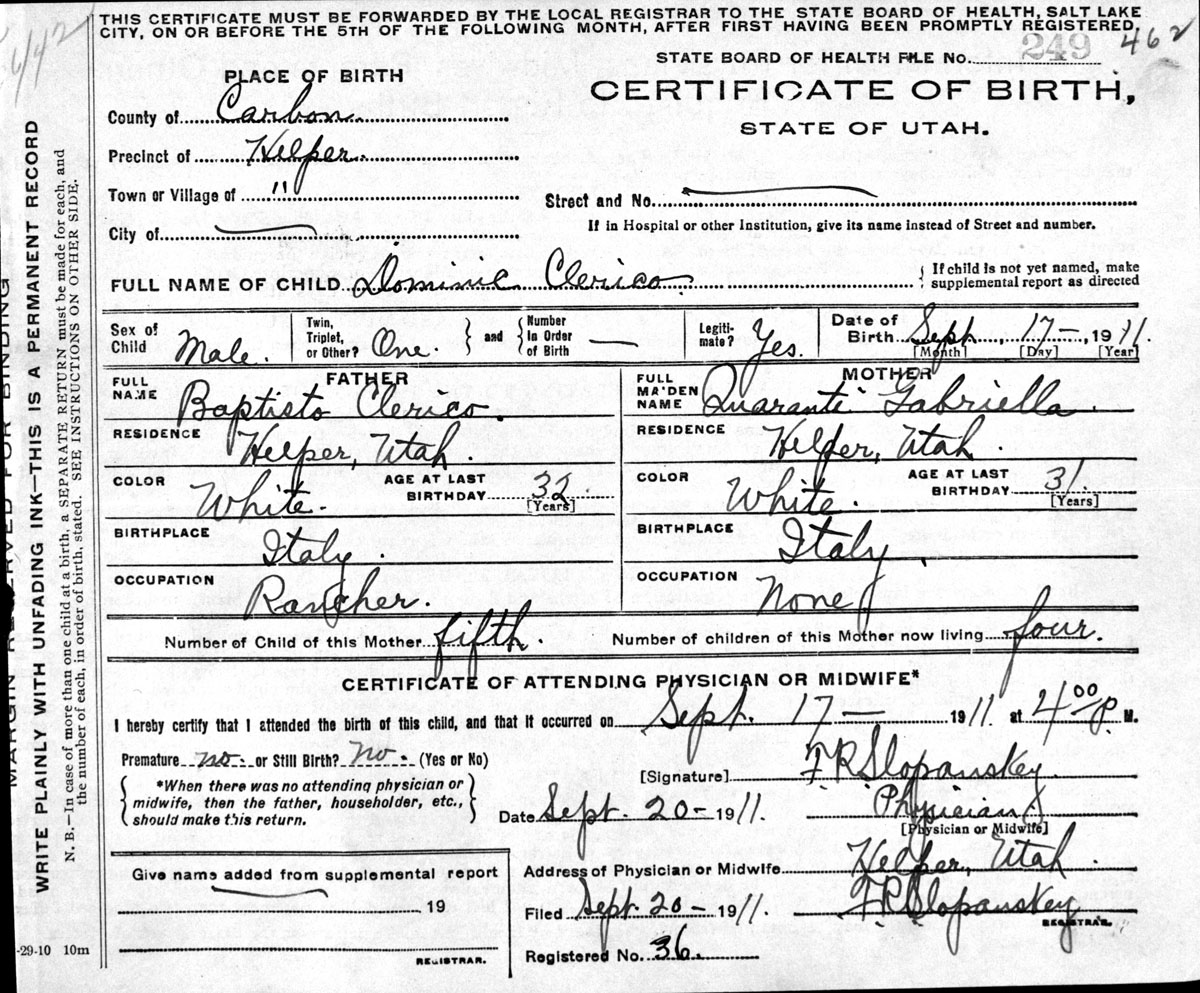 THIS CERTIFICATE MUST BE FORWARDED BY THE LOCAL REGISTRAR TO THE STATE BOARD OF HEALTH, SALT LAKE
CITY, ON OR BEFORE THE 5TH OF THE FOLLOWING MONTH, AFTER FIRST HAVING BEEN PROMPTLY REGISTERED
STATE BOARD OF HEALTH FILE No. 249 462
PLACE OF BIRTH
CERTIFICATE OF BIRTH,
STATE OF UTAH.
County of Carbon
Precinct of Helper.
Town or Village of "
Street and No.
City of
If in Hospital or other Institution, give its name instead of Street and number.
FULL NAME OF CHILD Dominic Clerico
If child is not yet named, make
supplemental report as directed
Sex of Child Male.
Twin, Triplet, or Other? One.
and
Number In Order of Birth
Legitimate? Yes.
Date of Birth Sept. 17 - , 1911.
[Month] [Day] [Year]
FATHER
FULL NAME Baptisto Clerico.
RESIDENCE Helper, Utah.
COLOR White.
AGE AT LAST BIRTHDAY 32.
[Years]
BIRTHPLACE Italy.
OCCUPATION Rancher.
MOTHER
FULL MAIDEN NAME Quaranti Gabriella.
RESIDENCE Helper, Utah
COLOR White.
AGE AT LAST BIRTHDAY 31.
[Years]
BIRTHPLACE Italy.
OCCUPATION None
Number of Child of this Mother fifth.
Number of children of this Mother now living four.
CERTIFICATE OF ATTENDING PHYSICIAN OR MIDWIFE*
I hereby certify that I attended the birth of this child, and that it occurred on Sept. 17 - 1911. at 4 00 P. M.
Premature no. or Still Birth? No. (Yes or No)
*When there was no attending physician or
midwife, then the father, householder, etc.,
should make this return.
[Signature] F R Slopanskey
Date Sept. 20 - 1911.
Physician
[Physician or Midwife]
Give name added from supplemental report
19
REGISTRAR.
Address of Physician or Midwife Helper, Utah.
Filed Sept. 20 - 1911.
F R Slopanskey
REGISTRAR.
Registered No. 36.
-29-10 10m
MARGIN RESERVED FOR BINDING
WRITE PLAINLY WITH UNFADING INK—THIS IS A PERMANENT RECORD
N. B.—In case of more than one child at a birth, a SEPARATE RETURN must be made for each, and
the number of each, in order of birth, stated. SEE INSTRUCTIONS ON OTHER SIDE.